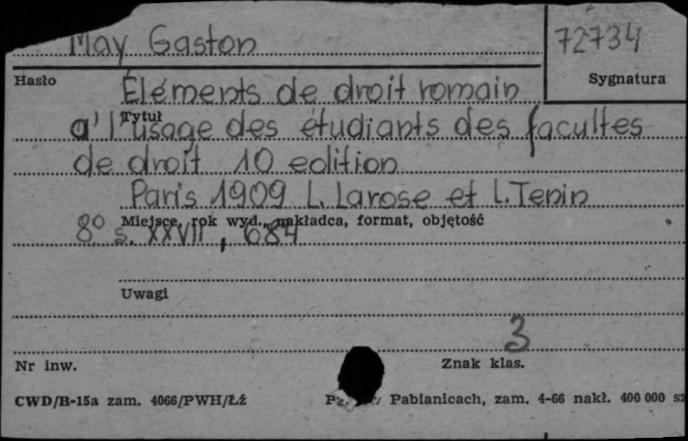 May Gaston
72734
Hasło
Sygnatura
Éléments de droit romain
Tytuł
a' l'usage des étudiants des facultes
de droit 10 edition
Paris 1909 L. Larose et L. Tenin
Miejsce, rok wyd., nakładca, format, objętość
8° s. XXVII, 684
Uwagi
3
Nr inw.
Znak klas.
CWD/B-15a zam. 4066/PWH/Łź
Pabianicach, zam. 4-66 nakł. 400 000